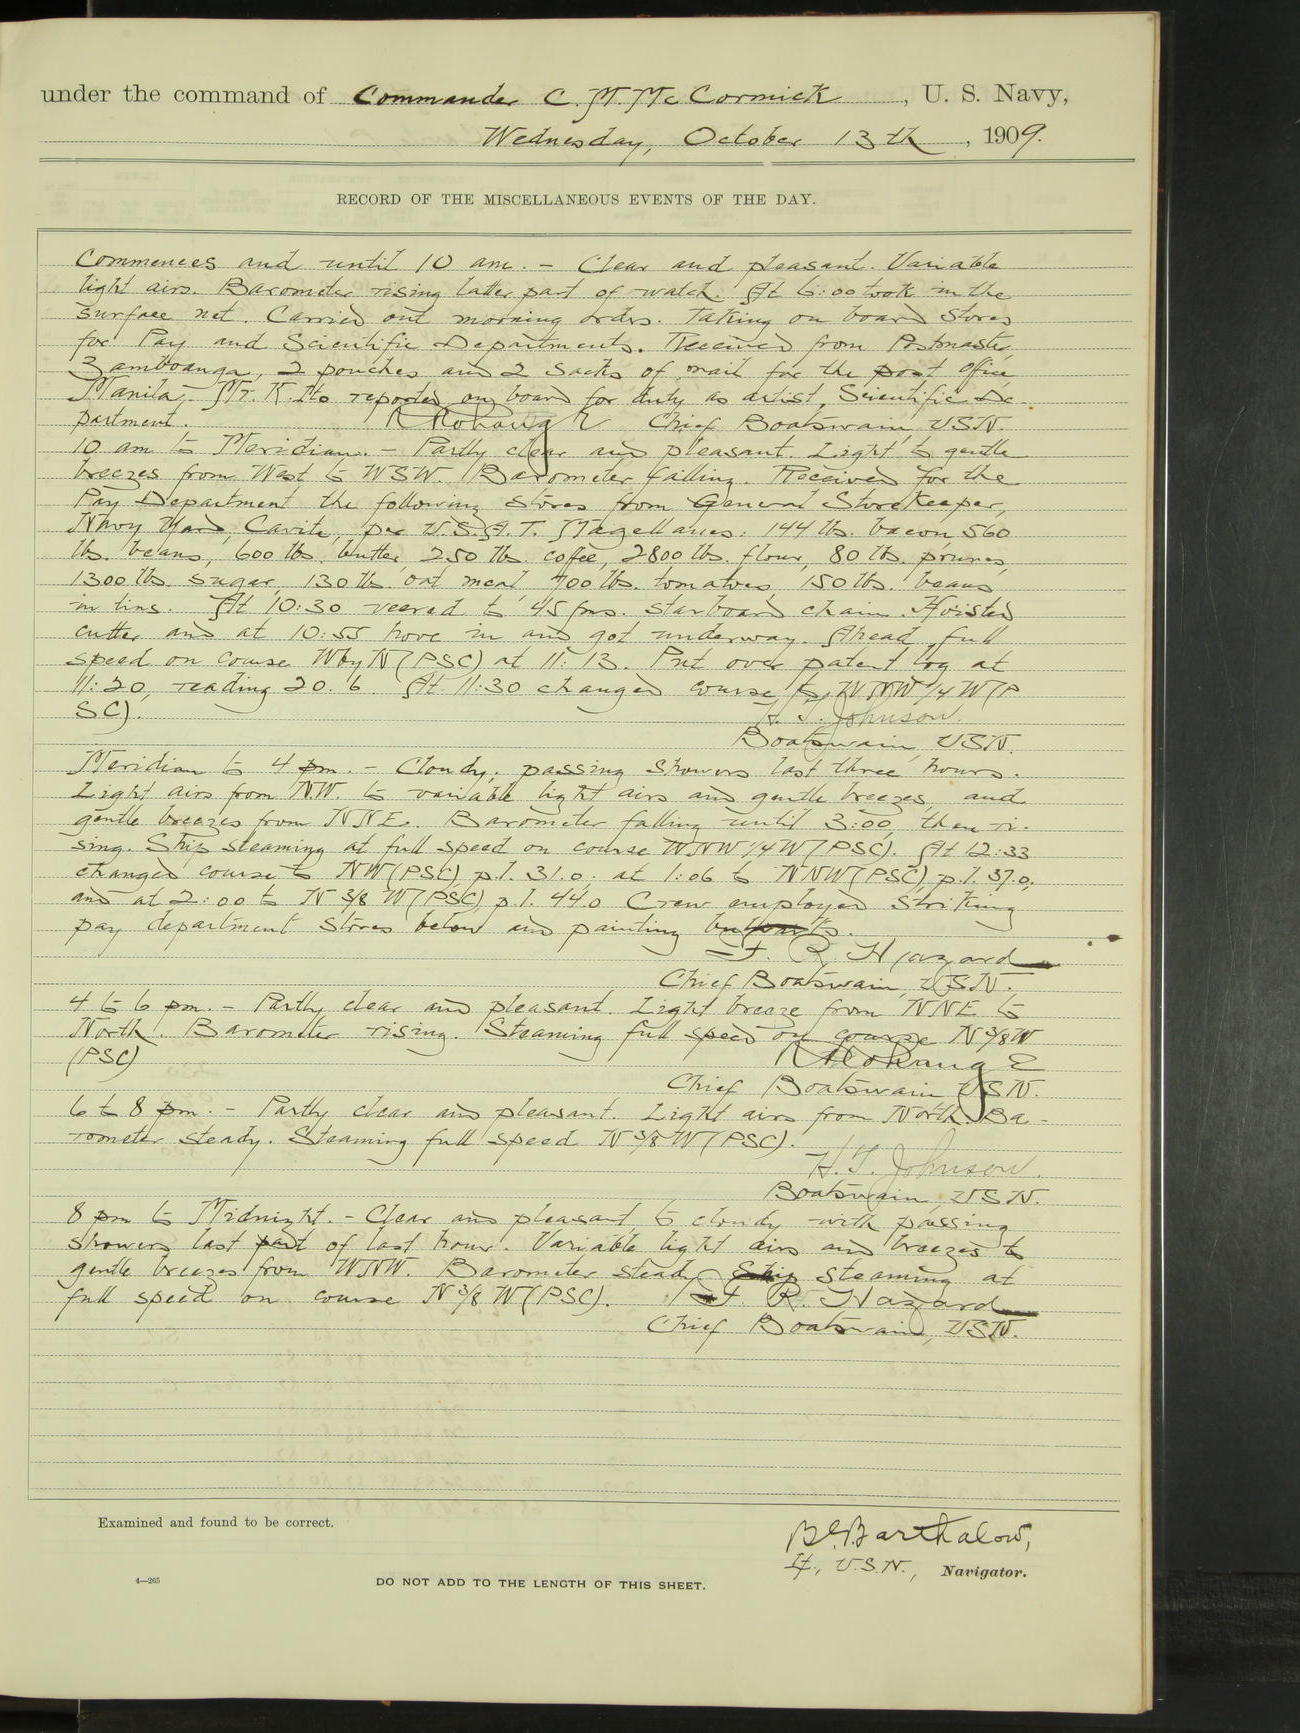 under the command of Commander C. M. McCormick, U. S. Navy,
Wednesday, October 13th, 1909.
RECORD OF THE MISCELLANEOUS EVENTS OF THE DAY.
Commences and until 10 am. - Clear and pleasant. Variable
light airs. Barometer rising latter part of watch. At 6:00 took in the
surface net. Carried out morning orders. Taking on board stores
for Pay and Scientific Departments. Received from Postmaster,
Zamboanga, 2 pouches and 2 sacks of mail for the post office
Manila. Mr. K. Ito reported on board for duty as artist, Scientific De-
partment. Chief Boatswain, USN.
10 am to Meridian. - Partly clear and pleasant. Light to gentle
breezes from West to WSW. Barometer falling. Received for the
Pay Department the following stores from General Storekeeper,
Navy Yard, Cavite, per U.S.A.T. Magellanes: 144 lbs. bacon 560
lbs. beans, 600 lbs. butter, 250 lbs. coffee, 2800 lbs. flour, 80 lbs. prunes,
1300 lbs. sugar, 130 lbs oat meal, 700 lbs. tomatoes, 150 lbs. beans
in tins. At 10:30 veered to 45 fms. starboard chain. Hoisted
cutter and at 10:55 hove in and got underway. Ahead full
speed on course W by N (PSC) at 11:13. Put over patent log at
11:20, reading 20.6. At 11:30 changed course to WNW 1/4 W (P
SC). H. T. Johnson.
Boatswain, USN.
Meridian to 4 pm. - Cloudy; passing showers last three hours.
Light airs from NW. to variable light airs and gentle breezes, and
gentle breezes from NNE. Barometer falling until 3:00, then ri-
sing. Ship steaming at full speed on course WNW 1/4 W (PSC). At 12:33
changed course to NW (PSC) p.l. 31.0; at 1:06 to NNW (PSC), p.l. 37.0,
and at 2:00 to N 3/8 W (PSC), p.l. 44.0 Crew employed striking
pay department stores below and painting bulwarks.
F. R. Hazard
Chief Boatswain, USN.
4 to 6 pm. - Partly clear and pleasant. Light breeze from NNE to
North. Barometer rising. Steaming full speed on course N 3/8 W
(PSC)
Chief Boatswain USN.
6 to 8 pm. - Partly clear and pleasant. Light airs from North. Ba-
rometer steady. Steaming full speed N 3/8 W (PSC).
H. T. Johnson.
Boatswain, USN.
8 pm to Midnight. - Clear and pleasant, to cloudy with passing
showers last part of last hour. Variable light airs and breezes to
gentle breezes from WNW. Barometer steady. Ship steaming at
full speed on course N 3/8 W (PSC). F. R. Hazard
Chief Boatswain, USN.
Examined and found to be correct.
B. Barthalow,
Lt., U.S.N., Navigator.
4—265
DO NOT ADD TO THE LENGTH OF THIS SHEET.